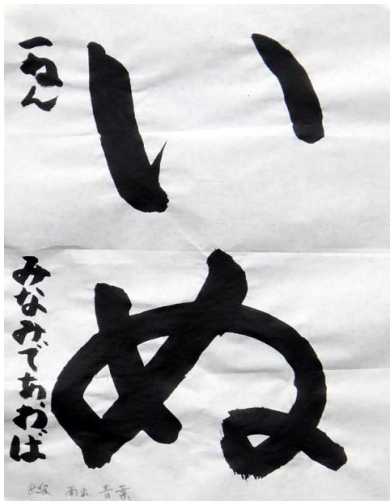 いぬ
一ねん
みなみであおば
8級 南出 青葉